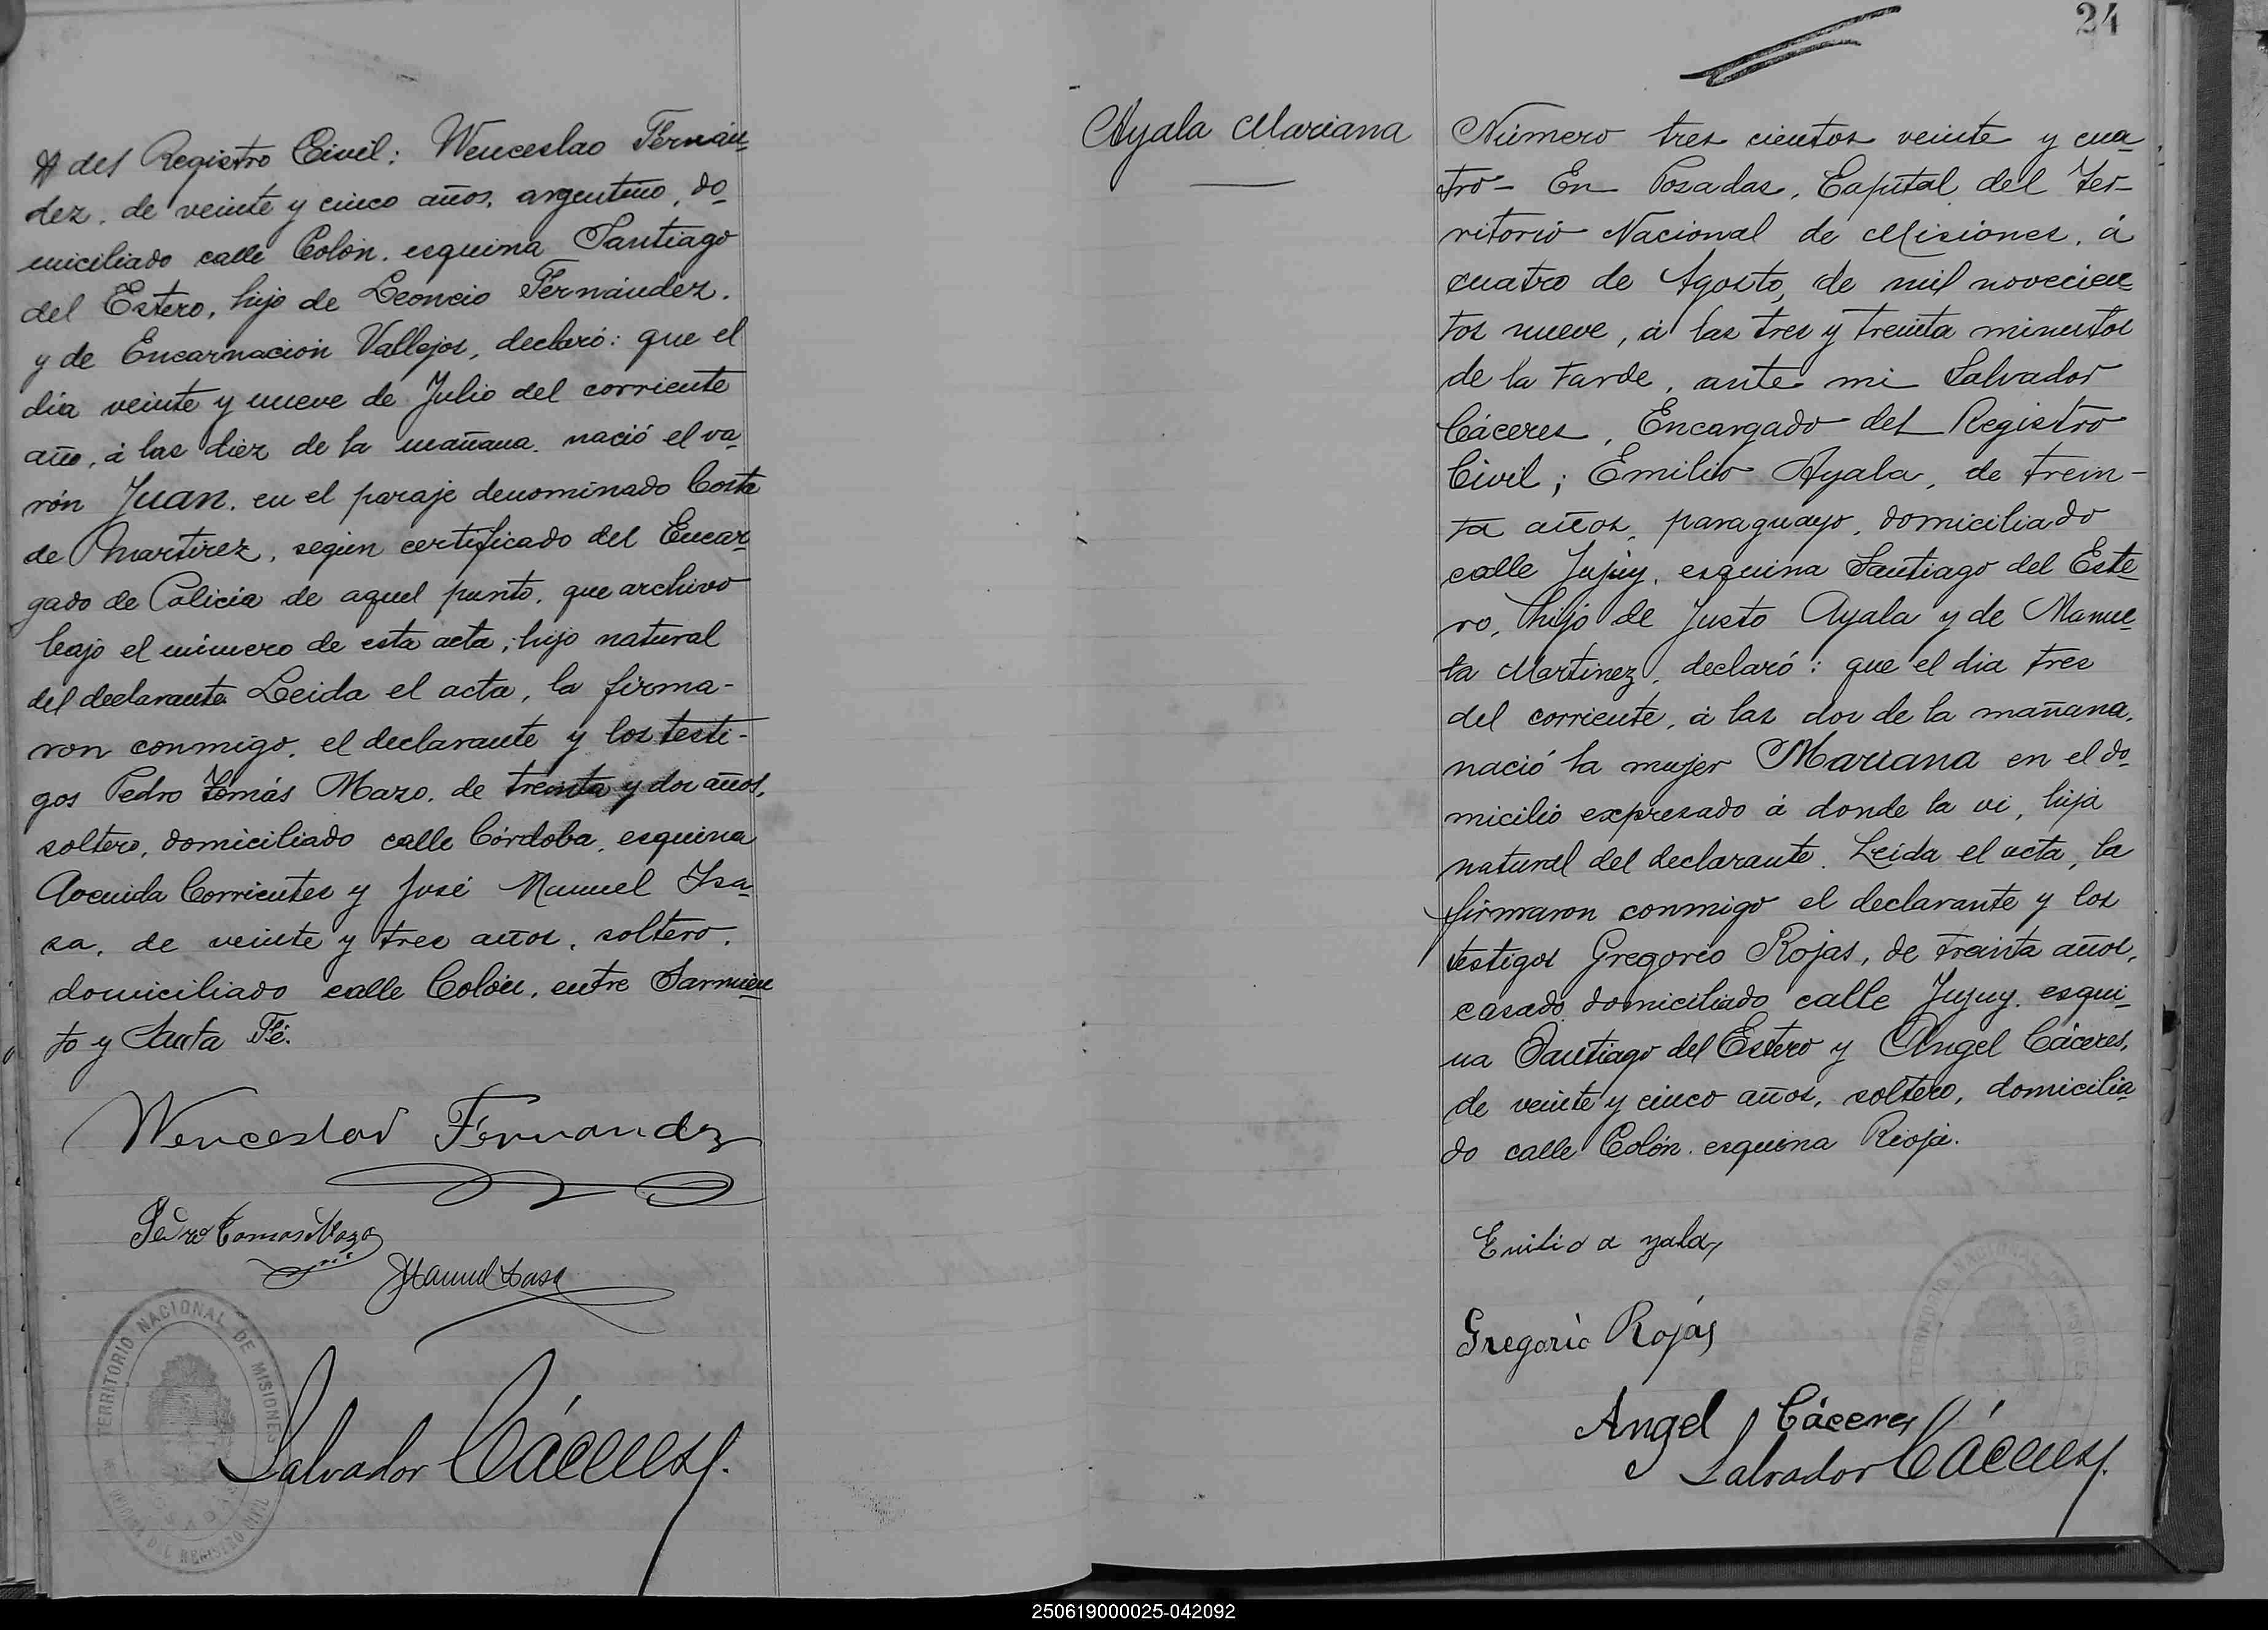 del Registro Civil; Wenceslao Fernán-
dez, de veinte y cinco años, argentino, do-
miciliado calle Colón, esquina Santiago
del Estero, hijo de Leoncio Fernández,
y de Encarnación Vallejos, declaró: que el
dia veinte y nueve de Julio del corriente
año, á las diez de la mañana, nació el va-
rón Juan, en el paraje denominado Costa
de Martirez, según certificado del Encar-
gado de Policía de aquel punto, que archivo
bajo el número de esta acta; hijo natural
del declarante. Leida el acta, la firma-
ron conmigo, el declarante y los testi-
gos Pedro Tomás Mazo, de treinta y dos años,
soltero, domiciliado calle Córdoba, esquina
Avenida Corrientes y José Manuel Isa-
sa, de veinte y tres años, soltero,
domiciliado calle Colón, entre Sarmien-
to y Santa Fé.
Wenceslao Fernandez
Pedro Tomas Mazo
JManuel Isasa
Salvador Cáceres
TERRITORIO NACIONAL DE MISIONES
OFICINA DEL REGISTRO CIVIL
24
Ayala Mariana
Número tres cientos veinte y cua-
tro- En Posadas, Capital del Ter-
ritorio Nacional de Misiones, á
cuatro de Agosto, de mil novecien-
tos nueve, á las tres y treinta minutos
de la tarde, ante mi Salvador
Cáceres, Encargado del Registro
Civil; Emilio Ayala, de trein-
ta años, paraguayo, domiciliado
calle Jujuy, esquina Santiago del Este-
ro, hijo de Justo Ayala y de Manue-
la Martinez, declaró: que el dia tres
del corriente, á las dos de la mañana,
nació la mujer Mariana en el do-
micilio expresado á donde la vi, hija
natural del declarante. Leida el acta, la
firmaron conmigo el declarante y los
testigos Gregorio Rojas, de treinta años,
casado, domiciliado calle Jujuy, esqui-
na Santiago del Estero y Angel Cáceres,
de veinte y cinco años, soltero, domicilia-
do calle Colón esquina Rioja.
Emilio a yala
Gregorio Rojas
Angel Cáceres
Salvador Cáceres
250619000025-042092